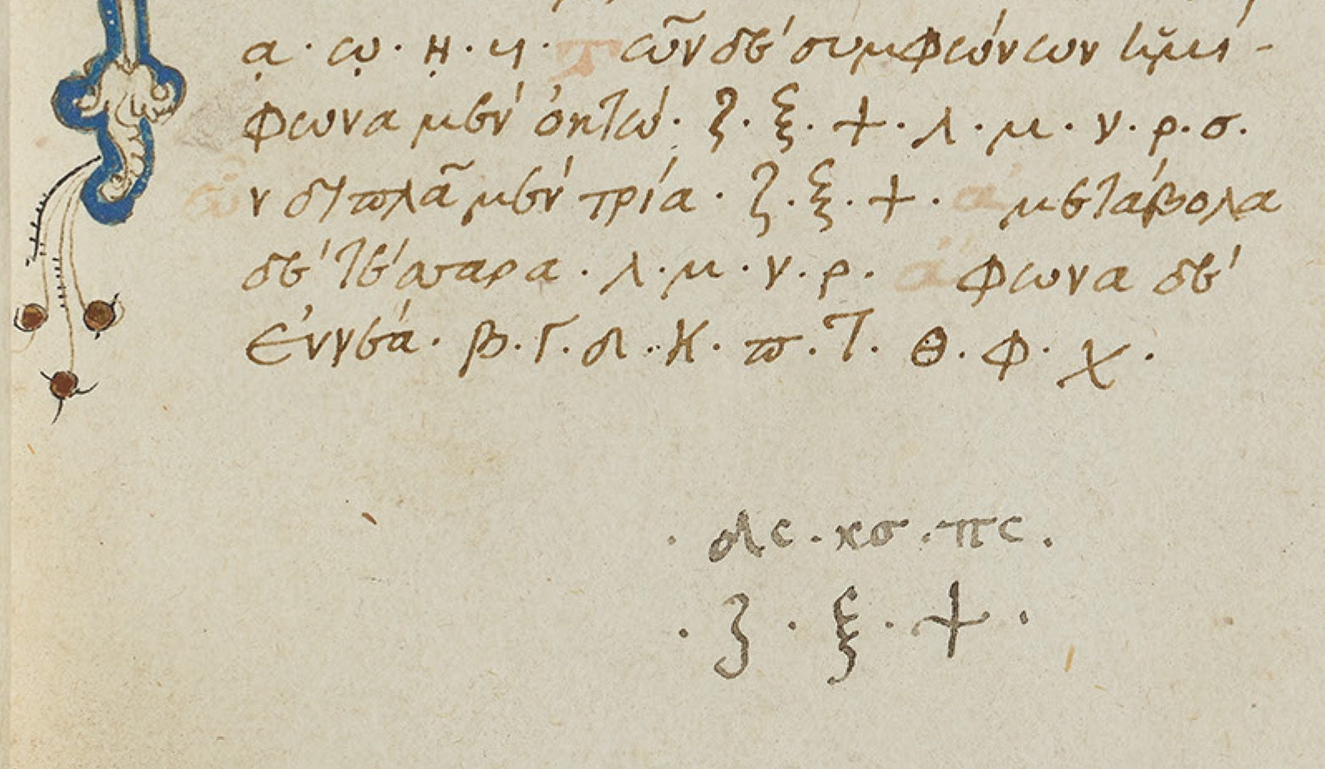 ᾳ · ῳ · ῃ · υι · Τῶν δὲ συμφώνων ἡμί-
φωνα μὲν ὀκτώ · ζ · ξ · ψ · λ · μ · ν · ρ · σ.
ὧν διπλᾶ μὲν τρία · ζ · ξ · ψ · ἀμετάβολα
δὲ τέσσαρα · λ · μ · ν · ρ · ἄφωνα δὲ
ἐννέα · β · γ · δ · κ · π · τ · θ · φ · χ ·
· δς · κσ · πς ·
· ζ · ξ · ψ ·